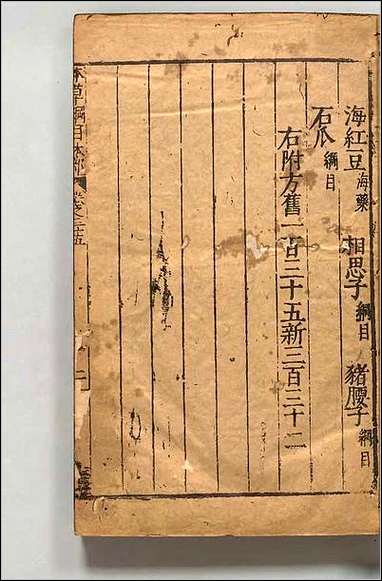 海紅豆海藥 相思子綱目 豬腰子綱目
石瓜綱目
右附方舊一百三十五新三百三十二
本草綱目木部
卷之三十五
二